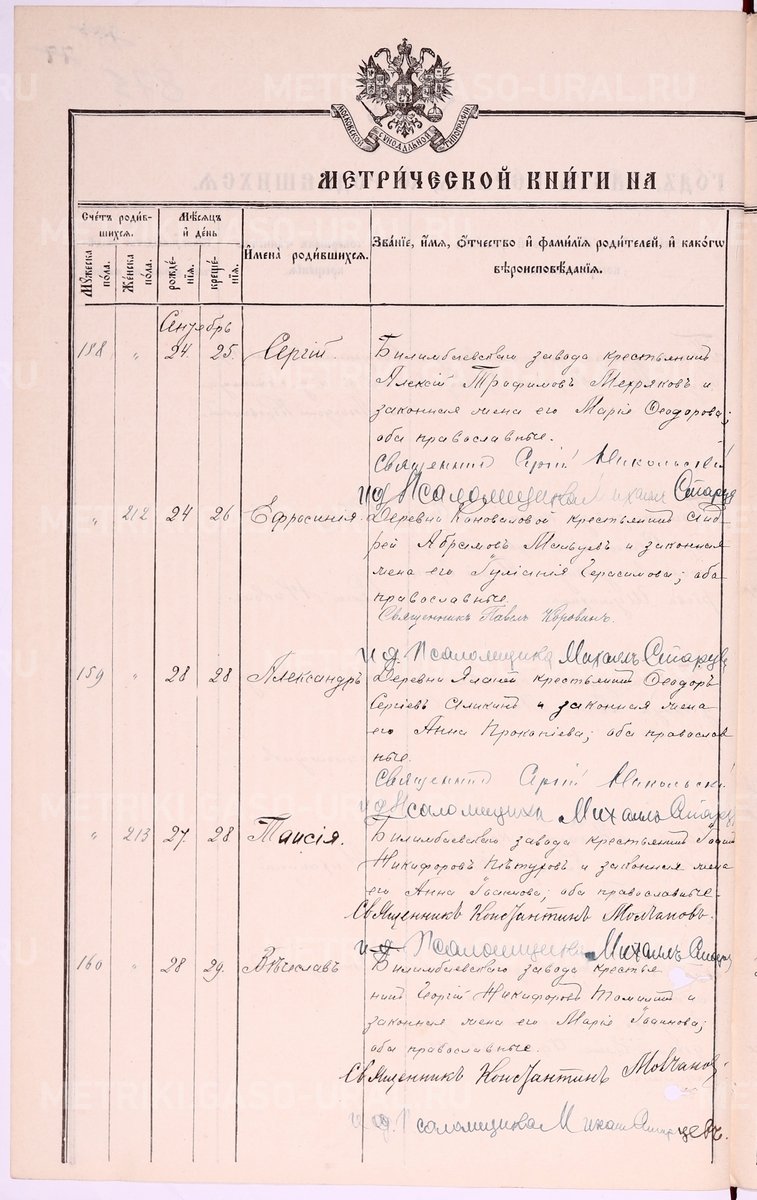 METRIKI.GASO-URAL.RU
МОСКОВСКОЙ СѴНОДАЛЬНОЙ ТИПОГРАФІИ
МЕТРИ́ЧЕСКОЙ КНИ́ГИ НА
Сче́тъ роди́в-
шихся.
Мѣ́сяцъ
и҆ де́нь
Имена̀ роди́вшихся.
Зва́нїе, и҆́мя, ѻ҆́тчество и҆ фами́лїя роди́телей, и҆ како́гѡ
вѣроисповѣ́данїя.
Му́жеска
по́ла.
Же́нска
по́ла.
рожде́-
нїя.
креще́-
нїя.
Сентябрь
158 " 24 25 Сергій.
Билимбаевскаго завода крестьянинъ
Алексій Трофимовъ Мехряковъ и
законная жена его Марія Ѳеодорова;
оба православные.
Священникъ Сергій Никольскій
и д Псаломщика Михаилъ Старцевъ
" 212 24 26 Ефросинія.
Деревни Коноваловой крестьянинъ Анд
рей Абрамовъ и законная
жена его Іуліанія Герасимова; оба
православные.
Священникъ Павелъ
и д. Псаломщика Михаилъ Старцевъ
159 " 28 28 Александръ
Деревни крестьянинъ Ѳеодоръ
Сергіевъ и законная жена
его Анна Прокопіева; оба православ
ные.
Священникъ Сергій Никольскій
и д Псаломщика Михаилъ Старцевъ
" 213 27 28 Таисія.
Билимбаевскаго завода крестьянинъ
Никифоровъ и законная жена
его Анна Іоаннова; оба православные
Священникъ Константинъ Молчановъ.
и д. Псаломщика Михаилъ Старцевъ
160 " 28 29 Вячеславъ
Билимбаевскаго завода крестья
нинъ Георгій Никифоровъ Томилинъ и
законная жена его Марія Іоаннова;
оба православные.
Священникъ Константинъ Молчановъ
и д. Псаломщика Михаилъ Старцевъ.